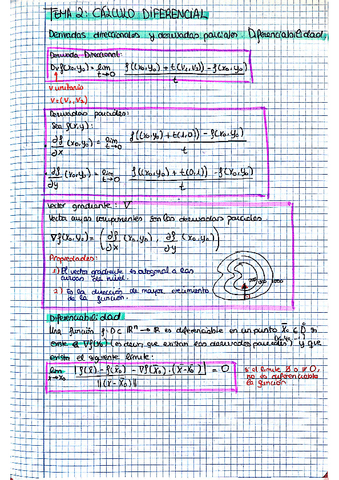 TEMA 2: CÁLCULO DIFERENCIAL
Derivadas direccionales y derivadas parciales. Diferenciabilidad.
Derivada Direccional:
Dv f(x₀,y₀) = lim t→0 f((x₀,y₀) + t(v₁,v₂)) - f(x₀,y₀) / t
v unitario
v=(v₁,v₂)
Derivadas parciales:
Sea f(x,y):
∂f/∂x (x₀,y₀) = lim t→0 f((x₀,y₀)+t(1,0)) - f(x₀,y₀) / t
∂f/∂y (x₀,y₀) = lim t→0 f((x₀,y₀)+t(0,1)) - f(x₀,y₀) / t
Vector gradiente: ∇
Vector cuyas componentes son las derivadas parciales
∇f(x₀,y₀) = (∂f/∂x (x₀,y₀), ∂f/∂y (x₀,y₀))
Propiedades:
1) El vector gradiente es ortogonal a las
curvas de nivel.
2) Es la dirección de mayor crecimiento
de la función.
Diferenciabilidad
Una función f: D ⊂ ℝⁿ → ℝ es diferenciable en un punto x̄₀ ∈ D si
existe el ∇f(x₀) (es decir que existan las derivadas parciales) y que
exista el siguiente límite:
lim x→x₀ |f(x̄) - f(x̄₀) - ∇f(x₀)·(x̄-x̄₀)| / ||(x̄-x̄₀)|| = 0
si el limite ∄ o ≠ 0,
no es diferenciable
la función